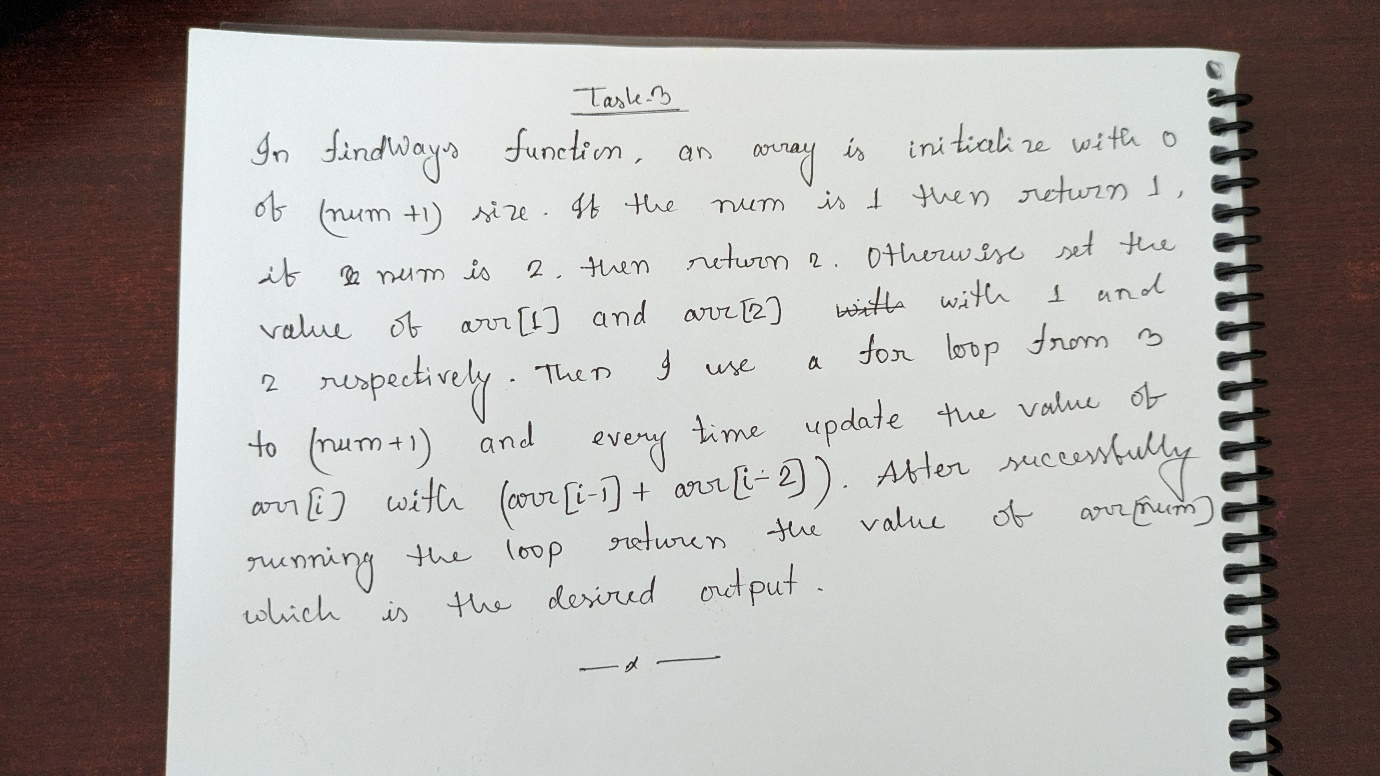 Task-3
In findWays function, an array is initialize with 0
of (num +1) size. If the num is 1 then return 1,
if num is 2, then return 2. Otherwise set the
value of arr[1] and arr[2] with with 1 and
2 respectively. Then I use a for loop from 3
to (num+1) and every time update the value of
arr[i] with (arr[i-1] + arr[i-2]). After successfully
running the loop return the value of arr[num]
which is the desired output.